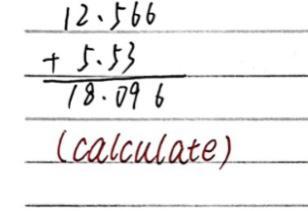 12.566
+ 5.53
18.096
(calculate)